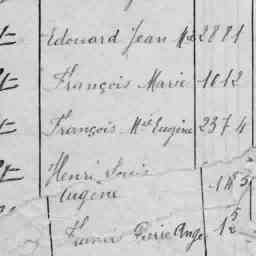 Edouard Jean Mie 2881
François Marie 1612
François Mie Eugène 2374
Henri Louis
Eugène
Pierre Ange